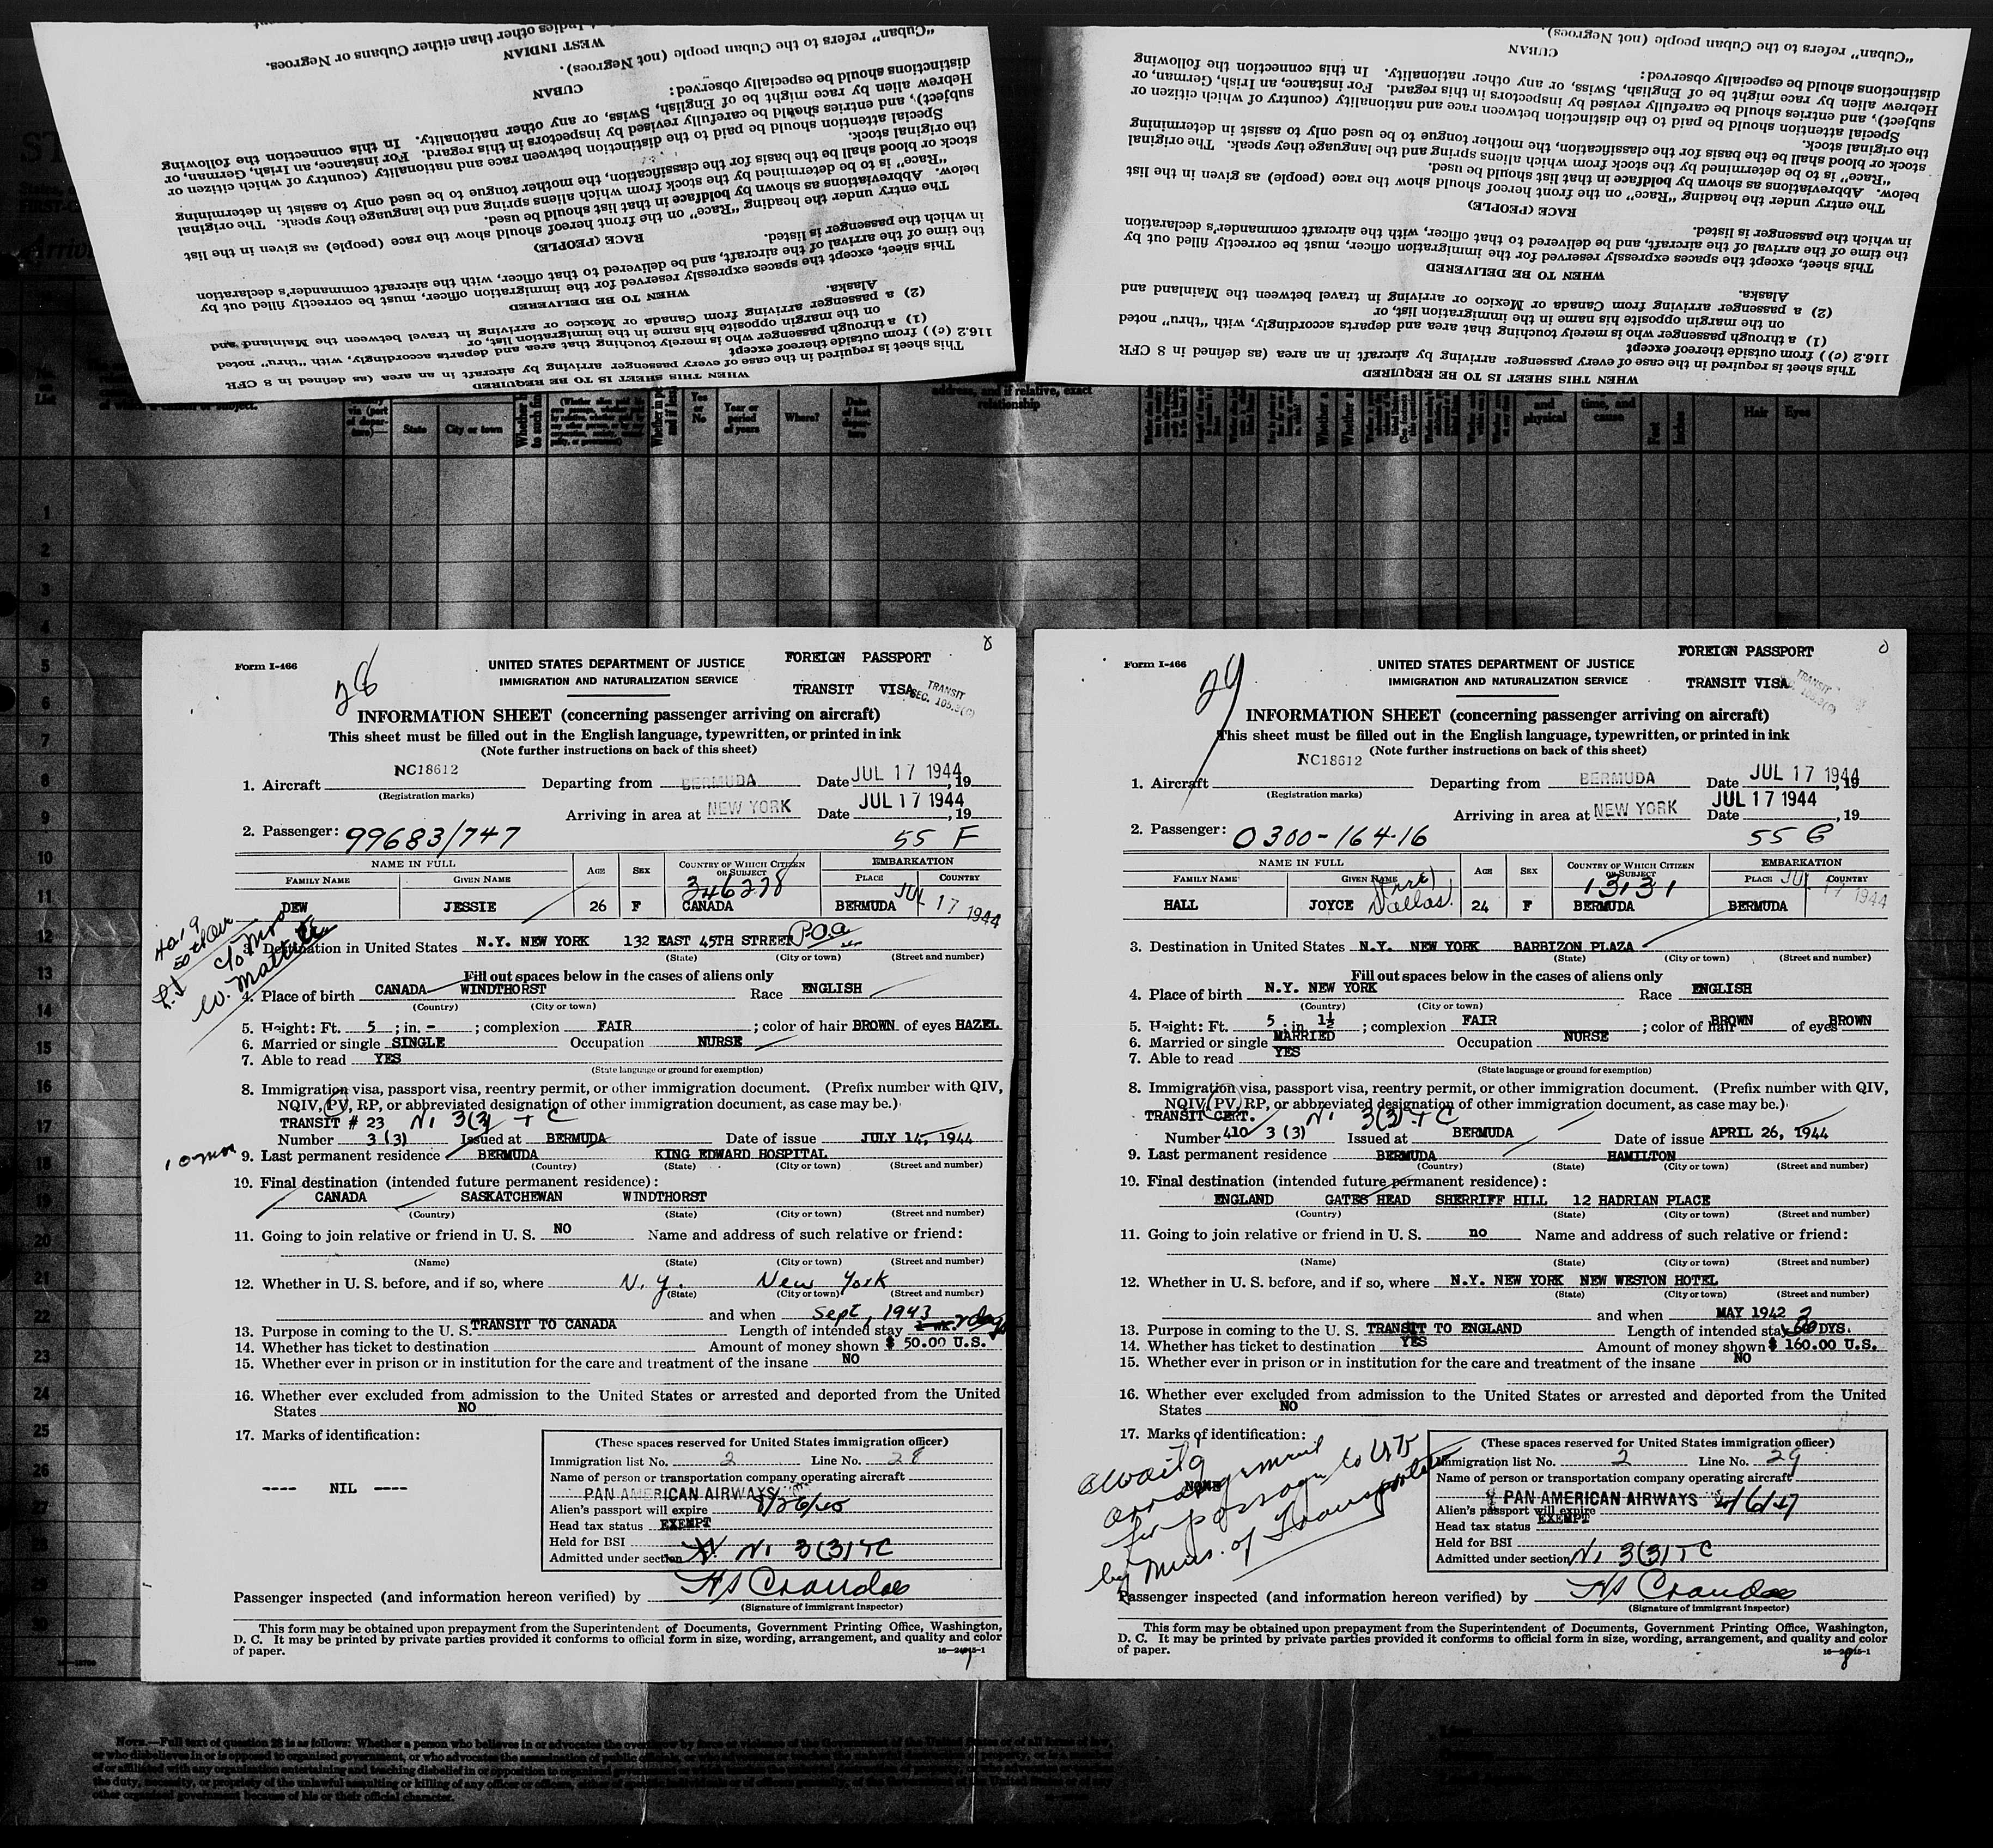 Indies other than either Cubans or Negroes.
WEST INDIAN
"Cuban" refers to the Cuban people (not Negroes).
CUBAN
distinctions should be especially observed:
Hebrew alien by race might be of English, Swiss, or any other nationality. In this connection the following
subject), and entries should be carefully revised by inspectors in this regard. For instance, an Irish, German, or
Special attention should be paid to the distinction between race and nationality (country of which citizen or
the original stock.
stock or blood shall be the basis for the classification, the mother tongue to be used only to assist in determining
"Race" is to be determined by the stock from which aliens spring and the language they speak. The original
below. Abbreviations as shown by boldface in that list should be used.
The entry under the heading "Race" on the front hereof should show the race (people) as given in the list
RACE (PEOPLE)
in which the passenger is listed.
the time of the arrival of the aircraft, and be delivered to that officer, with the aircraft commander's declaration
This sheet, except the spaces expressly reserved for the immigration officer, must be correctly filled out by
WHEN TO BE DELIVERED
Alaska.
(2) a passenger arriving from Canada or Mexico or arriving in travel between the Mainland and
on the margin opposite his name in the immigration list, or
(1) a through passenger who is merely touching that area and departs accordingly, with "thru" noted
116.2 (c)) from outside thereof except
This sheet is required in the case of every passenger arriving by aircraft in an area (as defined in 8 CFR
WHEN THIS SHEET IS TO BE REQUIRED
"Cuban" refers to the Cuban people (not Negroes).
CUBAN
distinctions should be especially observed:
Hebrew alien by race might be of English, Swiss, or any other nationality. In this connection the following
subject), and entries should be carefully revised by inspectors in this regard. For instance, an Irish, German, or
Special attention should be paid to the distinction between race and nationality (country of which citizen or
the original stock.
stock or blood shall be the basis for the classification, the mother tongue to be used only to assist in determining
"Race" is to be determined by the stock from which aliens spring and the language they speak. The original
below. Abbreviations as shown by boldface in that list should be used.
The entry under the heading "Race" on the front hereof should show the race (people) as given in the list
RACE (PEOPLE)
in which the passenger is listed.
the time of the arrival of the aircraft, and be delivered to that officer, with the aircraft commander's declaration
This sheet, except the spaces expressly reserved for the immigration officer, must be correctly filled out by
WHEN TO BE DELIVERED
Alaska.
(2) a passenger arriving from Canada or Mexico or arriving in travel between the Mainland and
on the margin opposite his name in the immigration list, or
(1) a through passenger who is merely touching that area and departs accordingly, with "thru" noted
116.2 (c)) from outside thereof except
This sheet is required in the case of every passenger arriving by aircraft in an area (as defined in 8 CFR
WHEN THIS SHEET IS TO BE REQUIRED
State City or town Yes or No Year or period of years Where? address, and if relative, exact relationship
and physical time, and cause Feet Inches Hair Eyes
Form I-466 28 UNITED STATES DEPARTMENT OF JUSTICE FOREIGN PASSPORT 8
IMMIGRATION AND NATURALIZATION SERVICE TRANSIT VISA TRANSIT SEC. 105.3(C)
INFORMATION SHEET (concerning passenger arriving on aircraft)
This sheet must be filled out in the English language, typewritten, or printed in ink
(Note further instructions on back of this sheet)
1. Aircraft NC18612 Departing from BERMUDA Date JUL 17 1944, 19
(Registration marks)
Arriving in area at NEW YORK Date JUL 17 1944, 19
2. Passenger: 99683/747 55 F
NAME IN FULL AGE SEX COUNTRY OF WHICH CITIZEN OR SUBJECT EMBARKATION
FAMILY NAME GIVEN NAME 346278 PLACE COUNTRY
DEW JESSIE 26 F CANADA BERMUDA JUL 17 1944
3. Destination in United States N.Y. NEW YORK 132 EAST 45TH STREET P.O.a
(State) (City or town) (Street and number)
Fill out spaces below in the cases of aliens only
4. Place of birth CANADA WINDTHORST Race ENGLISH
(Country) (City or town)
5. Height: Ft. 5 ; in. - ; complexion FAIR ; color of hair BROWN of eyes HAZEL
6. Married or single SINGLE Occupation NURSE
7. Able to read YES
(State language or ground for exemption)
8. Immigration visa, passport visa, reentry permit, or other immigration document. (Prefix number with QIV,
NQIV, PV, RP, or abbreviated designation of other immigration document, as case may be.)
TRANSIT # 23 N1 3(3) TC
Number 3 (3) Issued at BERMUDA Date of issue JULY 14, 1944
10 mon
9. Last permanent residence BERMUDA KING EDWARD HOSPITAL
(Country) (State) (City or town) (Street and number)
10. Final destination (intended future permanent residence):
CANADA SASKATCHEWAN WINDTHORST
(Country) (State) (City or town) (Street and number)
11. Going to join relative or friend in U. S. NO Name and address of such relative or friend:
(Name) (State) (City or town) (Street and number)
12. Whether in U. S. before, and if so, where N.Y. New York
(State) (City or town) (Street and number)
and when Sept, 1943
13. Purpose in coming to the U. S. TRANSIT TO CANADA Length of intended stay
14. Whether has ticket to destination Amount of money shown $ 50.00 U.S.
15. Whether ever in prison or in institution for the care and treatment of the insane NO
16. Whether ever excluded from admission to the United States or arrested and deported from the United
States NO
17. Marks of identification:
---- NIL ----
(These spaces reserved for United States immigration officer)
Immigration list No. 2 Line No. 28
Name of person or transportation company operating aircraft
PAN AMERICAN AIRWAYS
Alien's passport will expire 8/26/45
Head tax status EXEMPT
Held for BSI
Admitted under section N1 3(3) TC
Passenger inspected (and information hereon verified) by HS Crandae
(Signature of immigrant inspector)
This form may be obtained upon prepayment from the Superintendent of Documents, Government Printing Office, Washington,
D. C. It may be printed by private parties provided it conforms to official form in size, wording, arrangement, and quality and color
of paper.
Form I-466 29 UNITED STATES DEPARTMENT OF JUSTICE FOREIGN PASSPORT
IMMIGRATION AND NATURALIZATION SERVICE TRANSIT VISA TRANSIT
INFORMATION SHEET (concerning passenger arriving on aircraft)
This sheet must be filled out in the English language, typewritten, or printed in ink
(Note further instructions on back of this sheet)
1. Aircraft NC18612 Departing from BERMUDA Date JUL 17 1944, 19
(Registration marks)
Arriving in area at NEW YORK Date JUL 17 1944, 19
2. Passenger: 0300-164-16 55 C
NAME IN FULL AGE SEX COUNTRY OF WHICH CITIZEN OR SUBJECT EMBARKATION
FAMILY NAME GIVEN NAME 13131 PLACE COUNTRY
HALL JOYCE Dallas 24 F BERMUDA BERMUDA JUL 17 1944
3. Destination in United States N.Y. NEW YORK BARBIZON PLAZA
(State) (City or town) (Street and number)
Fill out spaces below in the cases of aliens only
4. Place of birth N.Y. NEW YORK Race ENGLISH
(Country) (City or town)
5. Height: Ft. 5 ; in. 1½ ; complexion FAIR ; color of hair BROWN of eyes BROWN
6. Married or single MARRIED Occupation NURSE
7. Able to read YES
(State language or ground for exemption)
8. Immigration visa, passport visa, reentry permit, or other immigration document. (Prefix number with QIV,
NQIV, PV, RP, or abbreviated designation of other immigration document, as case may be.)
TRANSIT CERT. N1 3(3) TC
Number 410 3 (3) Issued at BERMUDA Date of issue APRIL 26, 1944
9. Last permanent residence BERMUDA HAMILTON
(Country) (State) (City or town) (Street and number)
10. Final destination (intended future permanent residence):
ENGLAND GATES HEAD SHERRIFF HILL 12 HADRIAN PLACE
(Country) (State) (City or town) (Street and number)
11. Going to join relative or friend in U. S. no Name and address of such relative or friend:
(Name) (State) (City or town) (Street and number)
12. Whether in U. S. before, and if so, where N.Y. NEW YORK NEW WESTON HOTEL
(State) (City or town) (Street and number)
and when MAY 1942
13. Purpose in coming to the U. S. TRANSIT TO ENGLAND Length of intended stay 60 DYS.
14. Whether has ticket to destination YES Amount of money shown $ 160.00 U.S.
15. Whether ever in prison or in institution for the care and treatment of the insane NO
16. Whether ever excluded from admission to the United States or arrested and deported from the United
States NO
17. Marks of identification:
NONE
awaitg
arrangement
for passage to
by Mins. of Transportation
(These spaces reserved for United States immigration officer)
Immigration list No. 2 Line No. 29
Name of person or transportation company operating aircraft
PAN AMERICAN AIRWAYS
Alien's passport will expire 4/6/47
Head tax status EXEMPT
Held for BSI
Admitted under section N1 3(3) TC
Passenger inspected (and information hereon verified) by HS Crandae
(Signature of immigrant inspector)
This form may be obtained upon prepayment from the Superintendent of Documents, Government Printing Office, Washington,
D. C. It may be printed by private parties provided it conforms to official form in size, wording, arrangement, and quality and color
of paper.